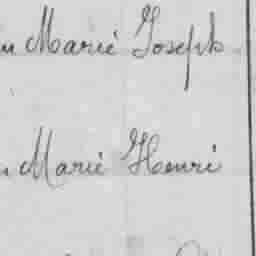 Marie Joseph
Marie Henri